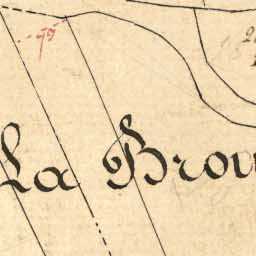 75
La Brou